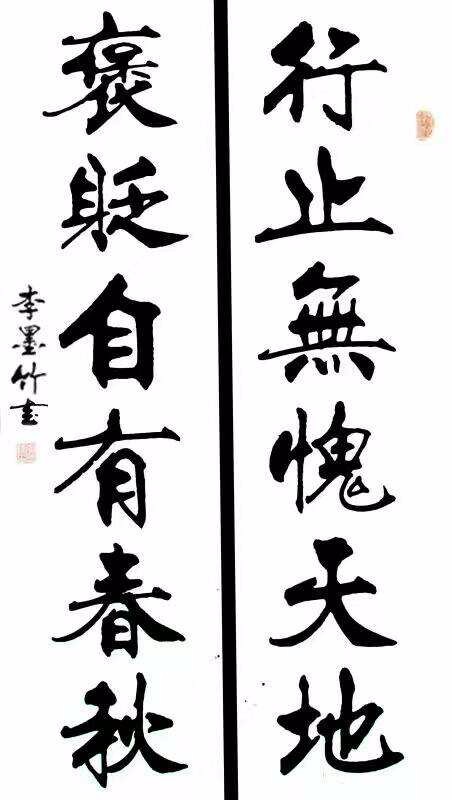 行止無愧天地
褒貶自有春秋
李墨竹书